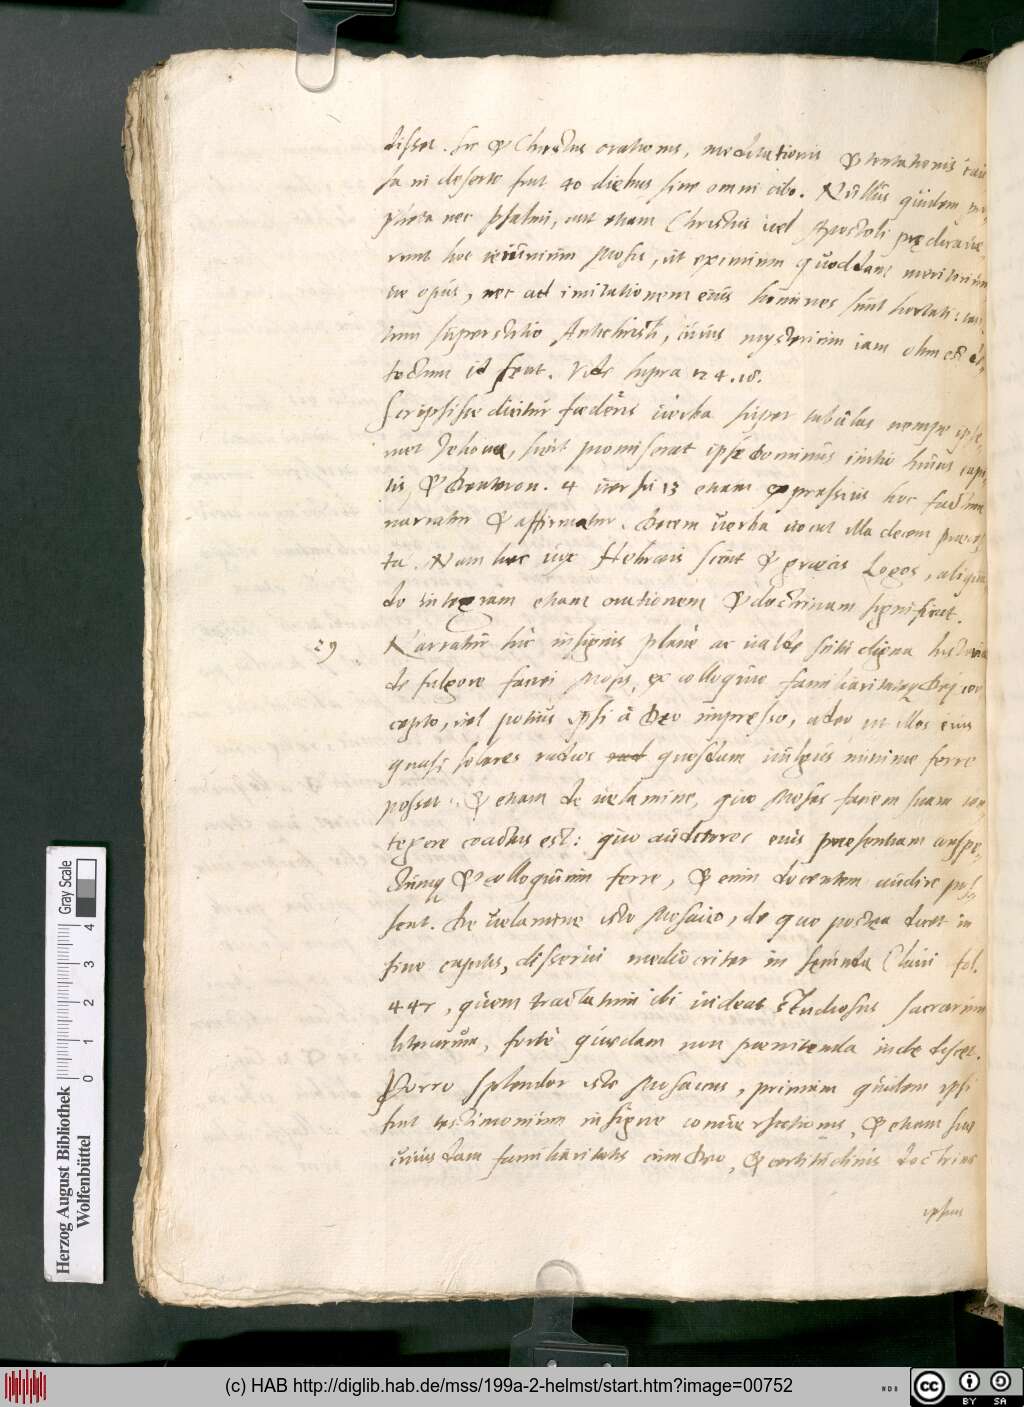 disset. Sic & Christus orationis, meditationis & tentationis cau
sa in deserto fuit 40 diebus sine omni cibo. Nullus quidem pro
pheta nec psalmi, aut etiam Christus vel Apostoli prędicave
runt hoc ieiunium Mosis, ut eximium quoddam meritorium
ve opus, nec ad imitationem eius homines sunt hortati: tan
tum superstitio Antichristi, cuius mysterium iam olim est de
tectum id fecit. Vide supra 24.18.
Scripsisse dicitur foederis verba super tabulas nempe ipse
met Jehova, sicut promiserat ipse Dominus initio huius capi
tis, & Deuteron. 4 versu 13 etiam expressius hoc factum
narratur & affirmatur. Decem verba vocat illa decem praecep
ta. Nam haec vox Hebraeis sicut & graecis Logos, aliquan
do integram etiam orationem & doctrinam significat.
29 Narratur hic insignis plane ac valde scitu digna historia
de fulgore faciei Mosis, ex colloquio familiaritateq Dei con
cepto, vel potius ipsi à Deo impresso, adeo ut illos eius
quasi solares radios quosdam vulgus minime ferre
posset. & etiam de velamine, quo Moses faciem suam con
tegere coactus est: quo auditores eius praesentiam conspe
ctumq & colloquium ferre, & enim docentem audire pos
sent. De velamine isto Mosaico, de quo postea dicet in
fine capitis, disserui mediocriter in secunda Clavi fol.
447, quem tractatum ibi videat studiosus sacrarum
literarum, forte quaedam non poenitenda inde discet.
Porro splendor iste Mosaicus, primum quidem ipsi
fuit testimonium insigne conversationis, & etiam suae
cuiusdam familiaritatis cum Deo, & certitudinis doctrinae
ipsius
Gray Scale
0 1 2 3 4
Herzog August Bibliothek
Wolfenbüttel
(c) HAB http://diglib.hab.de/mss/199a-2-helmst/start.htm?image=00752
cc
BY SA